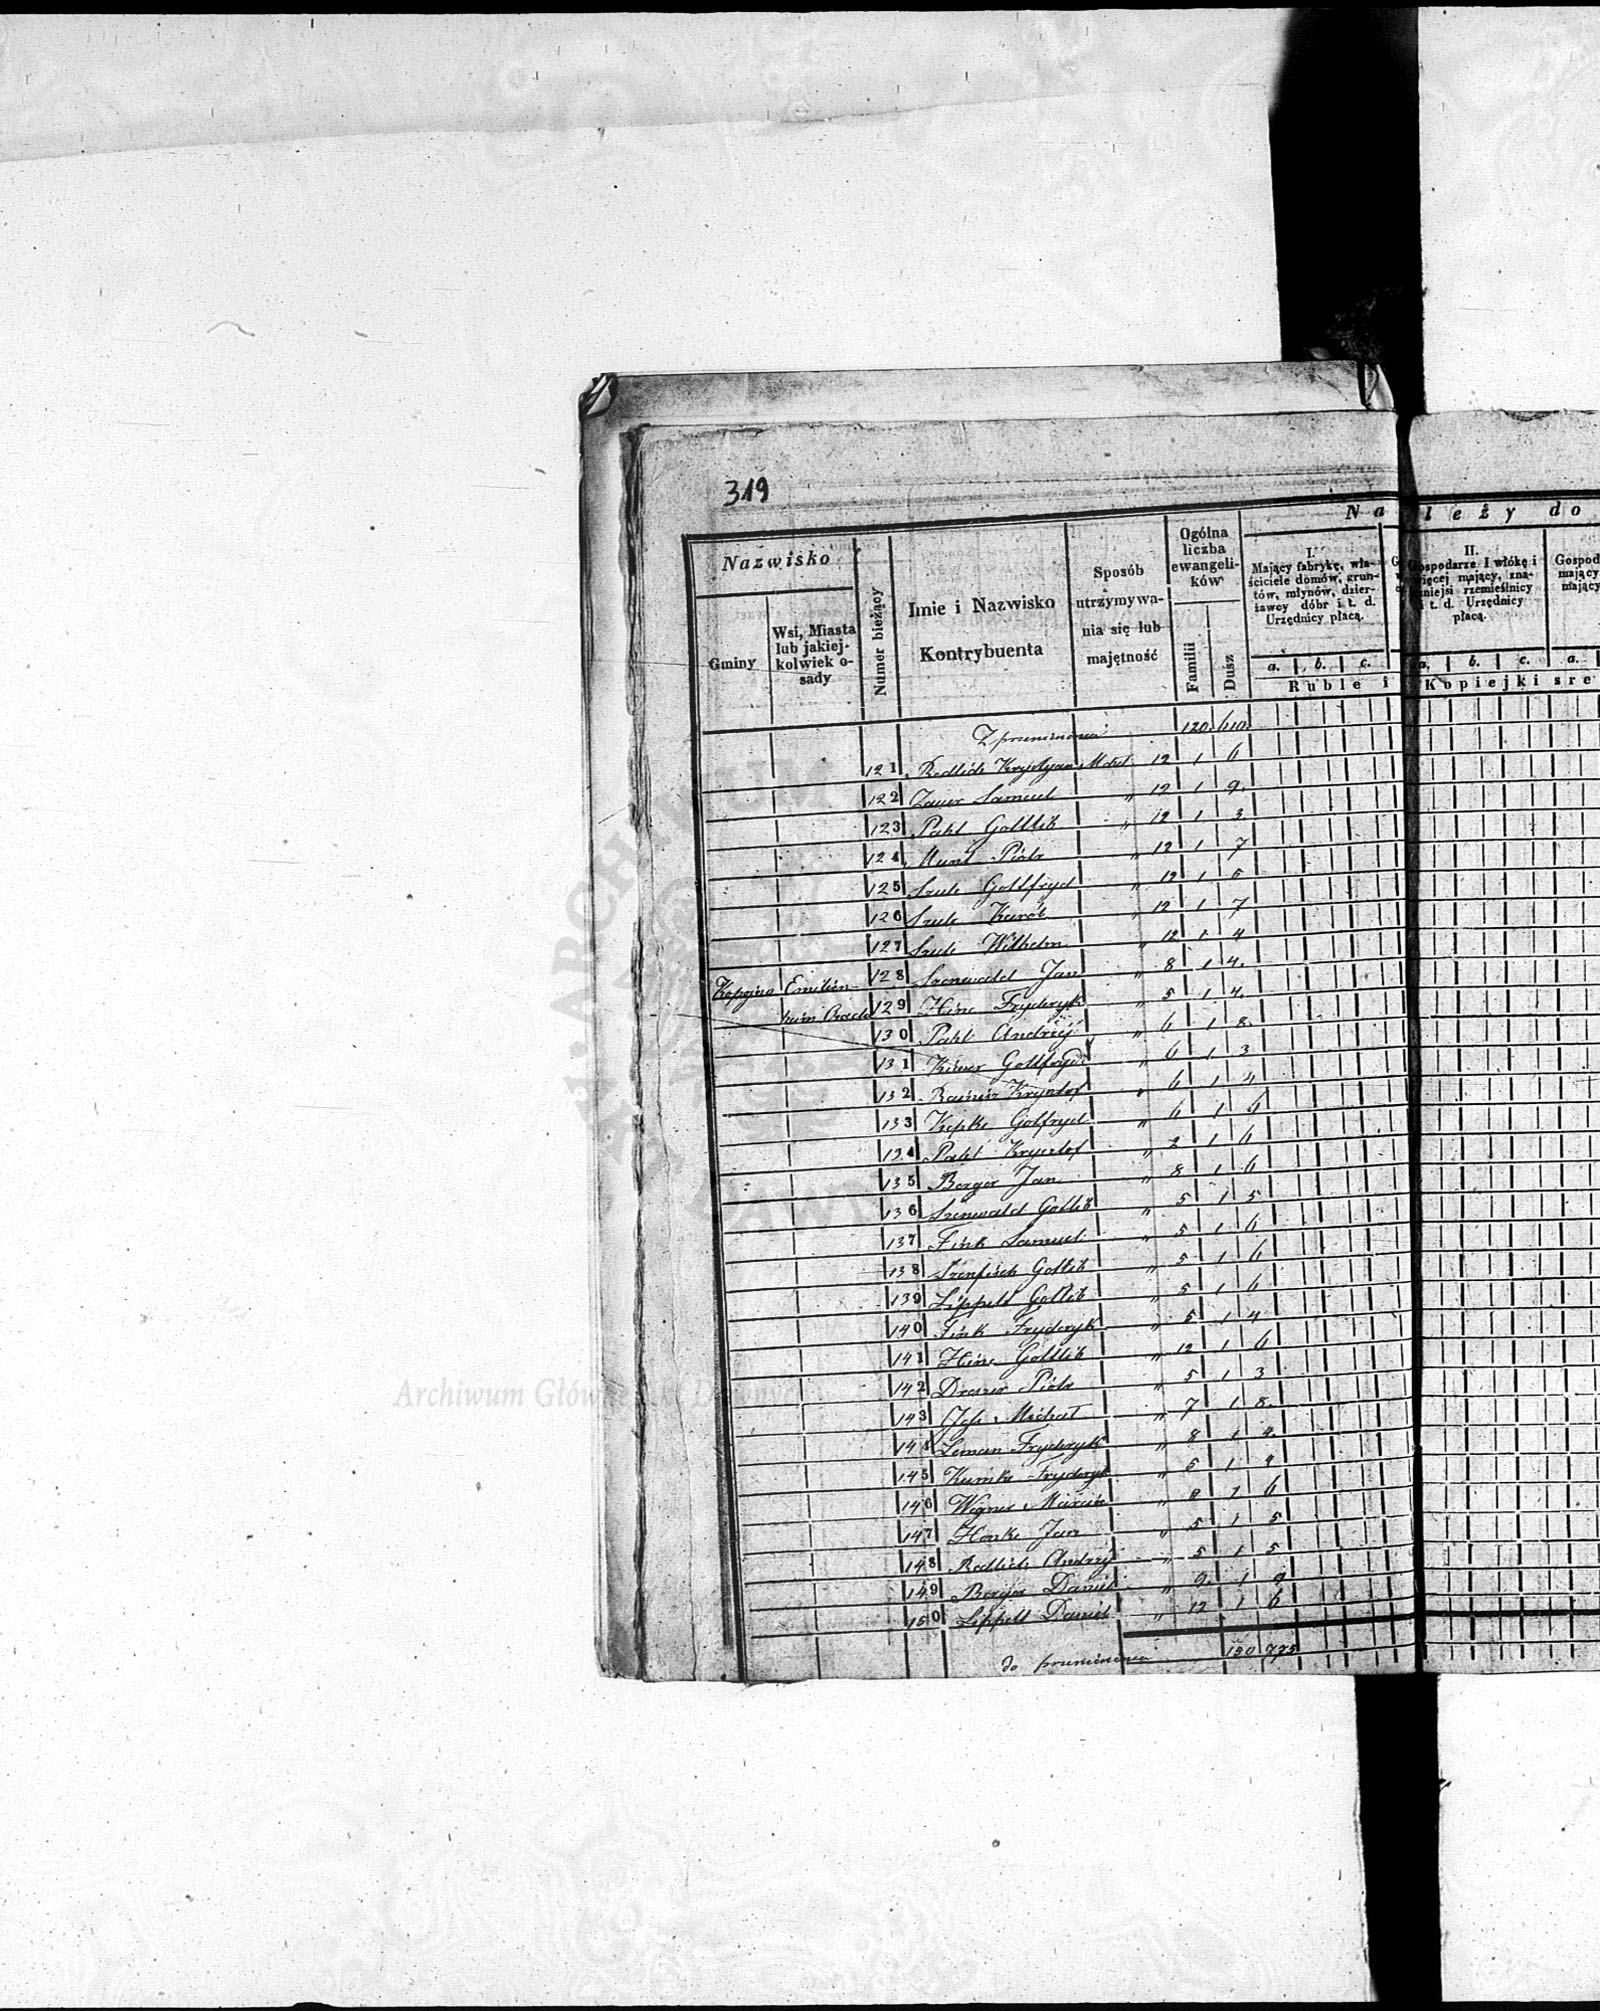 319
Należy do
Nazwisko
Gminy
Wsi, Miasta lub jakiej-kolwiek o-sady
Numer bieżący
Imie i Nazwisko Kontrybuenta
Sposób utrzymywa-nia się lub majętność
Ogólna liczba ewangeli-ków
Familii
Dusz
I. Mający fabrykę, wła-ściciele domów, grun-tów, młynów, dzier-żawcy dóbr i t. d. Urzędnicy płacą.
II. Gospodarze I włókę i więcej mający, zna-mniejsi rzemieślnicy i t. d. Urzędnicy płacą.
Gospod mający mający
a. b. c. a. b. c. a.
Ruble i Kopiejki sre
Z prueniesienia 120. 610.
121 Redlich Krystyan 12 1 6
122 Zauer Samuel " 12 1 9.
123 Pahl Gottlib " 12 1 3
124 Piotr " 12 1 7
125 Szulc Gottfryd " 12 1 5
126 Szulc Karól " 12 1 7
127 Szulc Wilhelm " 12 1 4
128 Szenewald Jan " 8 1 4.
129 Hinc Fryderyk " 5 1 4.
130 Pahl Andrzéj " 6 1 8.
131 Gottfryd " 6 1 3
132 Krysztof " 6 1 4
133 Kepke Gotfryd " 6 1 6
134 Pahl Krysztof " 2 1 6
135 Berger Jan " 8 1 6
136 Szenwald Gotlib " 5 1 5
137 Fink Samuel " 5 1 6
138 Szenfisch Gotlib " 5 1 6
139 Lippelt Gotlib " 5 1 6
140 Fink Fryderyk " 5 1 4
141 Hinc Gottlib " 12 1 6
142 Drezer Piotr " 5 1 3
143 Michał " 7 1 8.
144 Leman Fryderyk " 8 1 4.
145 Fryderyk " 5 1 4
146 Wegner Marcin " 8 1 6
147 Henke Jan " 5 1 5
148 Redlich Andrzéj " 5 1 5
149 Berger Daniel " 9. 1 9
150 Lippelt Daniel " 12 1 6
do prueniesienia 150 775
Archiwum Główne Akt Dawnych